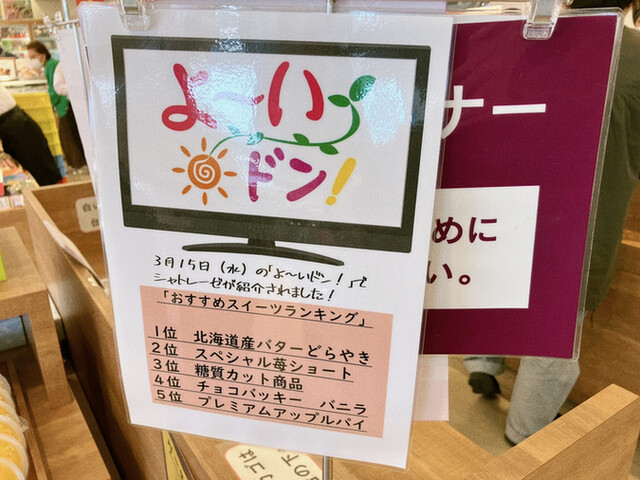 よ〜いドン!
3月15日(水)の「よ〜いドン!」で
シャトレーゼが紹介されました!
「おすすめスイーツランキング」
1位 北海道産バターどらやき
2位 スペシャル苺ショート
3位 糖質カット商品
4位 チョコバッキー バニラ
5位 プレミアムアップルパイ
ナー
めに
い。